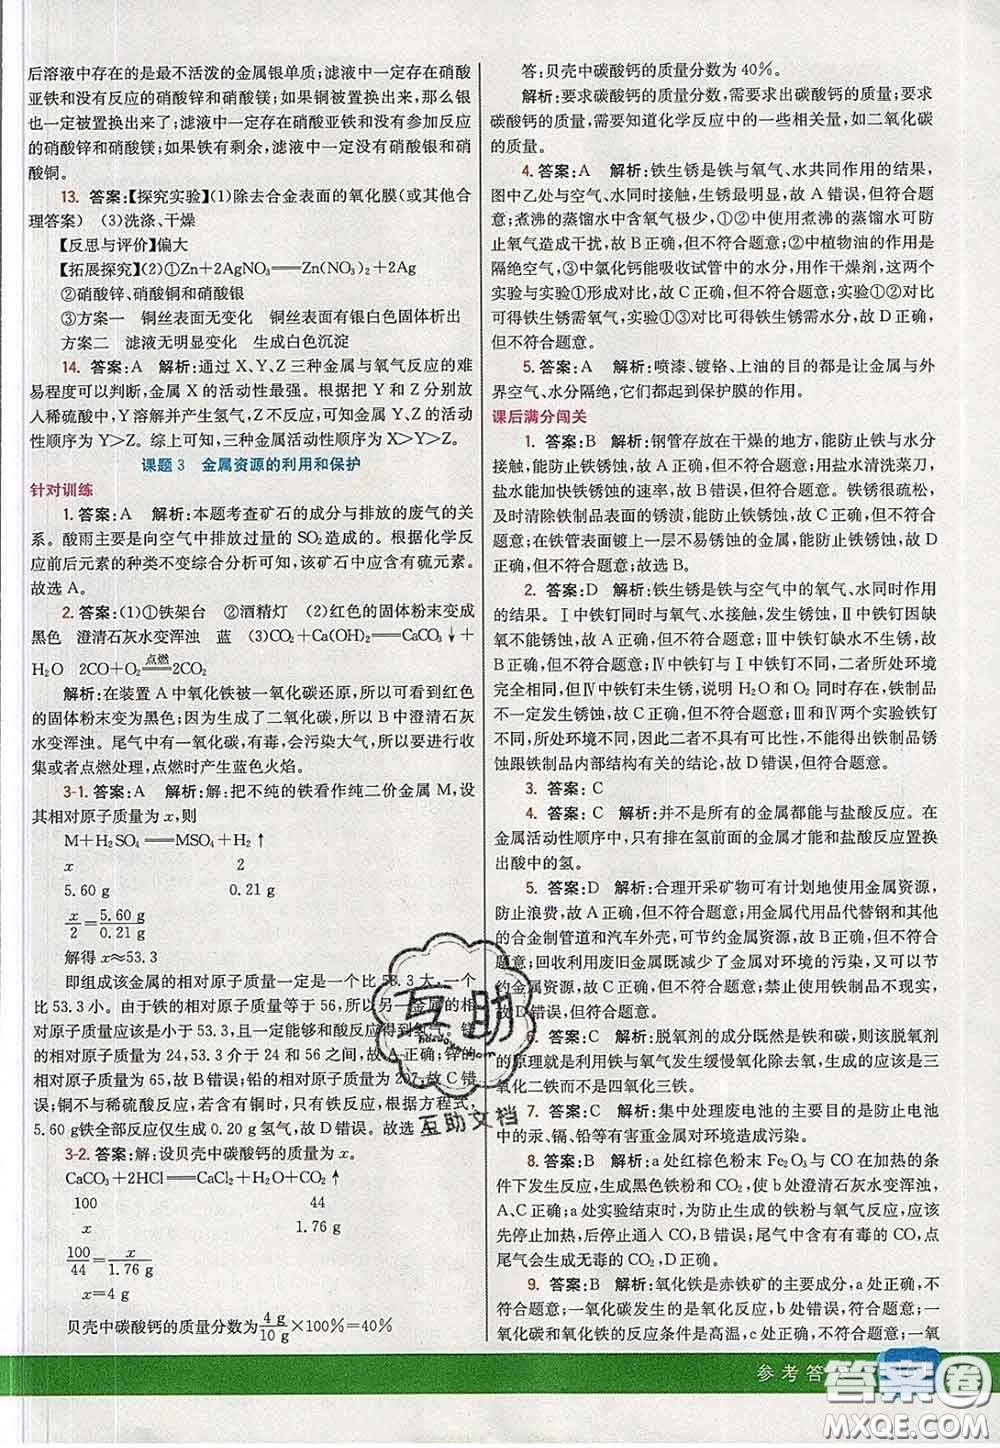 后溶液中存在的是最不活泼的金属银单质；滤液一定存在硝酸
亚铁和没有反应的硝酸锌和硝酸镁；如果铜被置换出来，那么银
也一定被置换出来了；滤液一定存在硝酸亚铁和没有参加反应
的硝酸锌和硝酸镁；如果铁有剩余，滤液一定没有硝酸银和硝
酸铜。
13. 答案：【探究实验】(1)除去合金表面的氧化膜(或其他合
理答案) (3)洗涤、干燥
【反思与评价】偏大
【拓展探究】(2)①Zn+2AgNO₃══Zn(NO₃)₂+2Ag
②硝酸锌、硝酸铜和硝酸银
③方案一 铜丝表面无变化 铜丝表面有银白色固体析出
方案二 滤液无明显变化 生成白色沉淀
14. 答案：A 解析：通过 X、Y、Z 三种金属与氧气反应的难
易程度可以判断，金属 X 的活动性最强。根据把 Y 和 Z 分别放
入稀硫酸中，Y 溶解并产生氢气，Z 不反应，可知金属 Y、Z 的活动
性顺序为 Y>Z。综上可知，三种金属活动性顺序为 X>Y>Z。
课题 3 金属资源的利用和保护
针对训练
1. 答案：A 解析：本题考查矿石的成分与排放的废气的关
系。酸雨主要是向空气中排放过量的 SO₂ 造成的。根据化学反
应前后元素的种类不变综合分析可知，该矿石中含有硫元素。
故选 A。
2. 答案：(1)①铁架台 ②酒精灯 (2)红色的固体粉末变成
黑色 澄清石灰水变浑浊 蓝 (3)CO₂+Ca(OH)₂══CaCO₃↓+
H₂O 2CO+O₂══点燃══2CO₂
解析：在装置 A 中氧化铁被一氧化碳还原，所以可看到红色
的固体粉末变为黑色；因为生成了二氧化碳，所以 B 中澄清石灰
水变浑浊。尾气中有一氧化碳，有毒，会污染大气，所以要进行收
集或者点燃处理，点燃时产生蓝色火焰。
3-1. 答案：A 解析：解：把不纯的铁看作纯二价金属 M，设
其相对原子质量为 x，则
M+H₂SO₄══MSO₄+H₂↑
x 2
5.60 g 0.21 g
x/2=5.60 g/0.21 g
解得 x≈53.3
即组成该金属的相对原子质量一定是一个比 53.3 大，一个
比 53.3 小。由于铁的相对原子质量等于 56，所以另一金属的相
对原子质量应该是小于 53.3，且一定能够和酸反应得到氢气。镁
的相对原子质量为 24，53.3 介于 24 和 56 之间，故 A 正确；锌的相
对原子质量为 65，故 B 错误；铅的相对原子质量为 207，故 C 错
误；铜不与稀硫酸反应，若含有铜时，则根据方程式，
5.60 g铁全部反应仅生成 0.20 g 氢气，故 D 错误。故选 A。
3-2. 答案：解：设贝壳中碳酸钙的质量为 x。
CaCO₃+2HCl══CaCl₂+H₂O+CO₂↑
100 44
x 1.76 g
100/44=x/1.76 g
x=4 g
贝壳中碳酸钙的质量分数为 4 g/10 g×100%=40%
答：贝壳中碳酸钙的质量分数为 40%。
解析：要求碳酸钙的质量分数，需要求出碳酸钙的质量；要求
碳酸钙的质量，需要知道化学反应中的一些相关量，如二氧化碳
的质量。
4. 答案：A 解析：铁生锈是铁与氧气、水共同作用的结果，
图中乙处与空气、水同时接触，生锈最明显，故 A 错误，但符合题
意；煮沸的蒸馏水中含氧气极少，①②中使用煮沸的蒸馏水可防
止氧气造成干扰，故 B 正确，但不符合题意；②中植物油的作用是
隔绝空气，③中氯化钙能吸收试管中的水分，用作干燥剂，这两个
实验与实验①形成对比，故 C 正确，但不符合题意；实验①②对比
可得铁生锈需氧气，实验①③对比可得铁生锈需水分，故 D 正确，
但不符合题意。
5. 答案：A 解析：喷漆、镀铬、上油的目的都是让金属与外
界空气、水分隔绝，它们都起到保护膜的作用。
课后满分闯关
1. 答案：B 解析：钢管存放在干燥的地方，能防止铁与水分
接触，能防止铁锈蚀，故 A 正确，但不符合题意。用盐水清洗菜刀，
盐水能加快铁锈蚀的速率，故 B 错误，但符合题意。铁锈很疏松，
及时清除铁制品表面的锈渍，能防止铁锈蚀，故 C 正确，但不符合题
意。在铁管表面镀上一层不易锈蚀的金属，能防止铁锈蚀，故 D
正确，但不符合题意。故选 B。
2. 答案：D 解析：铁生锈是铁与空气中的氧气、水同时作用
的结果。Ⅰ中铁钉同时与氧气、水接触，发生锈蚀，Ⅱ中铁钉因缺
氧不能锈蚀，故 A 正确，但不符合题意；Ⅲ中铁钉因缺水不能发生
锈蚀，故 B 正确，但不符合题意；Ⅳ中铁钉与Ⅰ中铁钉不同，二者所处环境
完全相同，但Ⅳ中铁钉未生锈，说明 H₂O 和 O₂ 同时存在，铁制品
不一定发生锈蚀，故 C 正确，但不符合题意；Ⅲ和Ⅳ两个实验铁钉
不同，所处环境不同，因此二者不具有可比性，不能得出铁制品锈
蚀跟铁制品内部结构有关的结论，故 D 错误，但符合题意。
3. 答案：C
4. 答案：C 解析：并不是所有的金属都能与盐酸反应。在
金属活动性顺序中，只有排在氢前面的金属才能和盐酸反应置换
出酸中的氢。
5. 答案：D 解析：合理开采矿物可有计划地使用金属资源，
防止浪费，故 A 正确，但不符合题意；用金属代用品代替钢和其他
的合金制管道和汽车外壳，可节约金属资源，故 B 正确，但不符合题
意；回收利用废旧金属既减少了金属对环境的污染，又
节约金属资源，故 C 正确，但不符合题意；禁止使用铁制品不现实，
故 D 错误，但符合题意。
6. 答案：C 解析：脱氧剂的成分既然是铁和碳，则该脱氧剂
的原理就是利用铁与氧气发生缓慢氧化除去氧，生成的应该是三
氧化二铁而不是四氧化三铁。
7. 答案：C 解析：集中处理废电池的主要目的是防止电池
中的汞、镉、铅等有害重金属对环境造成污染。
8. 答案：B 解析：a 处红棕色粉末 Fe₂O₃ 与 CO 在加热的条
件下发生反应，生成黑色铁粉和 CO₂，使 b 处澄清石灰水变浑浊，
A、C 正确；实验结束时，为防止生成的铁粉与氧气反应，应该
先停止加热，后停止通入 CO，B 错误；尾气中含有有毒的 CO，点燃
尾气会生成无毒的 CO₂，D 正确。
9. 答案：B 解析：氧化铁是赤铁矿的主要成分，a 处正确，不
符合题意；一氧化碳发生的是氧化反应，b 处错误，符合题意；一
氧化碳和氧化铁的反应条件是高温，c 处正确，不符合题意；一氧
参考答
互助
互助文档
答案圈
MXQE.COM